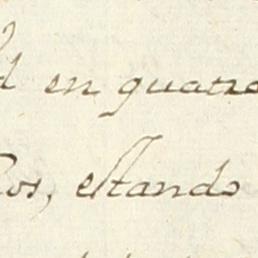 en quatro
los, estando